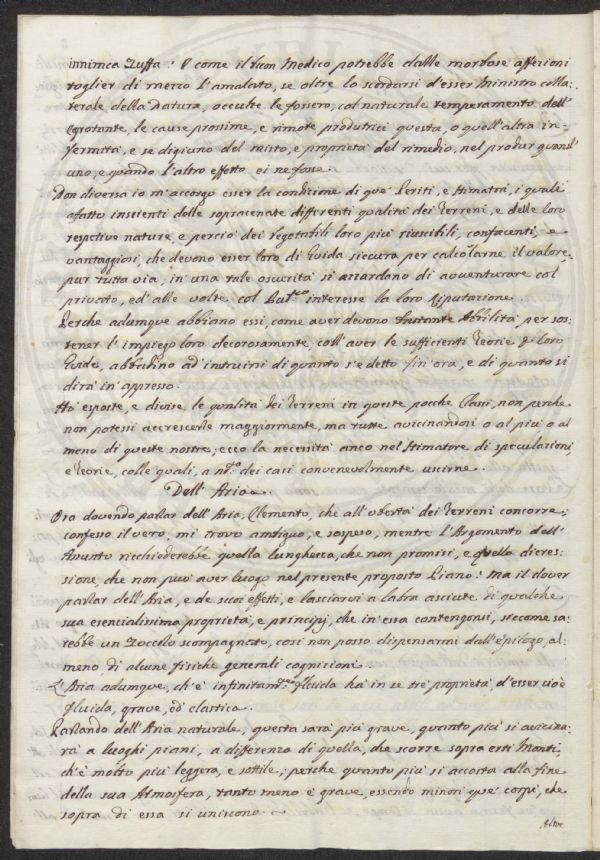 innimca Zuffa: O come il buon Medico potrebbe dalle morbose affezioni
toglier di mezzo l'amalato, se oltre lo scordarsi d'esser Ministro colla-
terale della Natura, occulte le fossero, col naturale temperamento dell'
Egrotante, le cause prossime, e rimote produtrici questa, o quell'altra in-
fermità, e se digiuno del misto, e proprietà del rimedio, nel produr quand'
uno, e quando l'altro effetto ei ne fosse.
Non diversa io m'accorgo esser la condizione di que' Periti, e stimatri, i quali
afatto inscienti delle sopracenate differenti qualità dei Terreni, e delle loro
respetive nature, e perciò dei vegetabili loro più riuscibili, confacenti, e
vantaggiosi, che devono esser loro di Guida siccura per calcolarne il valore,
pur tutta via, in una tale oscurità si azzardano di avventurare col
privato, ed' alle volte col Pub.co interesse la loro Riputazione.
Perche adumque abbiano essi, come aver devono bastante Abbilità per sos-
tener l'impiego loro decorosamente, coll'aver le sufficienti Teorie loro
Guide, abbadino ad' instruirsi di quanto s'è detto fin'ora, e di quanto si
dirà in appresso.
Hò esposte, e divise le qualità dei Terreni in queste pocche Classi, non perche
non potessi accrescerle maggiormente, ma tutte avicinandosi o al più o al
meno di queste nostre; ecco la necessità anco nel stimatore di speculazioni,
e Teorie, colle quali, a n.ro dei casi convenevolmente uscirne.
Dell' Aria.
Ora dovendo parlar dell'Aria, Elemento, che all'ubertà dei Terreni concorre;
confesso il vero, mi trovo ambiguo, e sospeso, mentre l'Argomento dell'
Assunto ricchiederebbe quella lunghezza, che non promisi, e quella digres-
sione, che non può aver luogo nel presente proposto Piano: Ma il dover
parlar dell'Aria, e de suoi effetti, e lasciarvi a labra asciute di qualche
sua esencialissima proprietà, e principj, che in essa contengonsi, siccome sa-
rebbe un Zoccolo scompagnato, così non posso dispensarmi dall'epilogo, al-
meno di alcune fisiche generali cognizioni.
L'Aria adumque, ch'è infinitam.te fluida hà in se trè proprietà, d'esser cioè
fluida, grave, ed' elastica.
Parlando dell'Aria naturale, questa sarà più grave, quanto più si avicina-
rà a luoghi piani, a differenza di quella, che scorre sopra erti Monti,
ch'è molto più leggera, e sottile; perche quanto più si accosta alla fine
della sua Atmosfera, tanto meno è grave, essendo minori que' corpi, che
sopra di essa si uniscono.